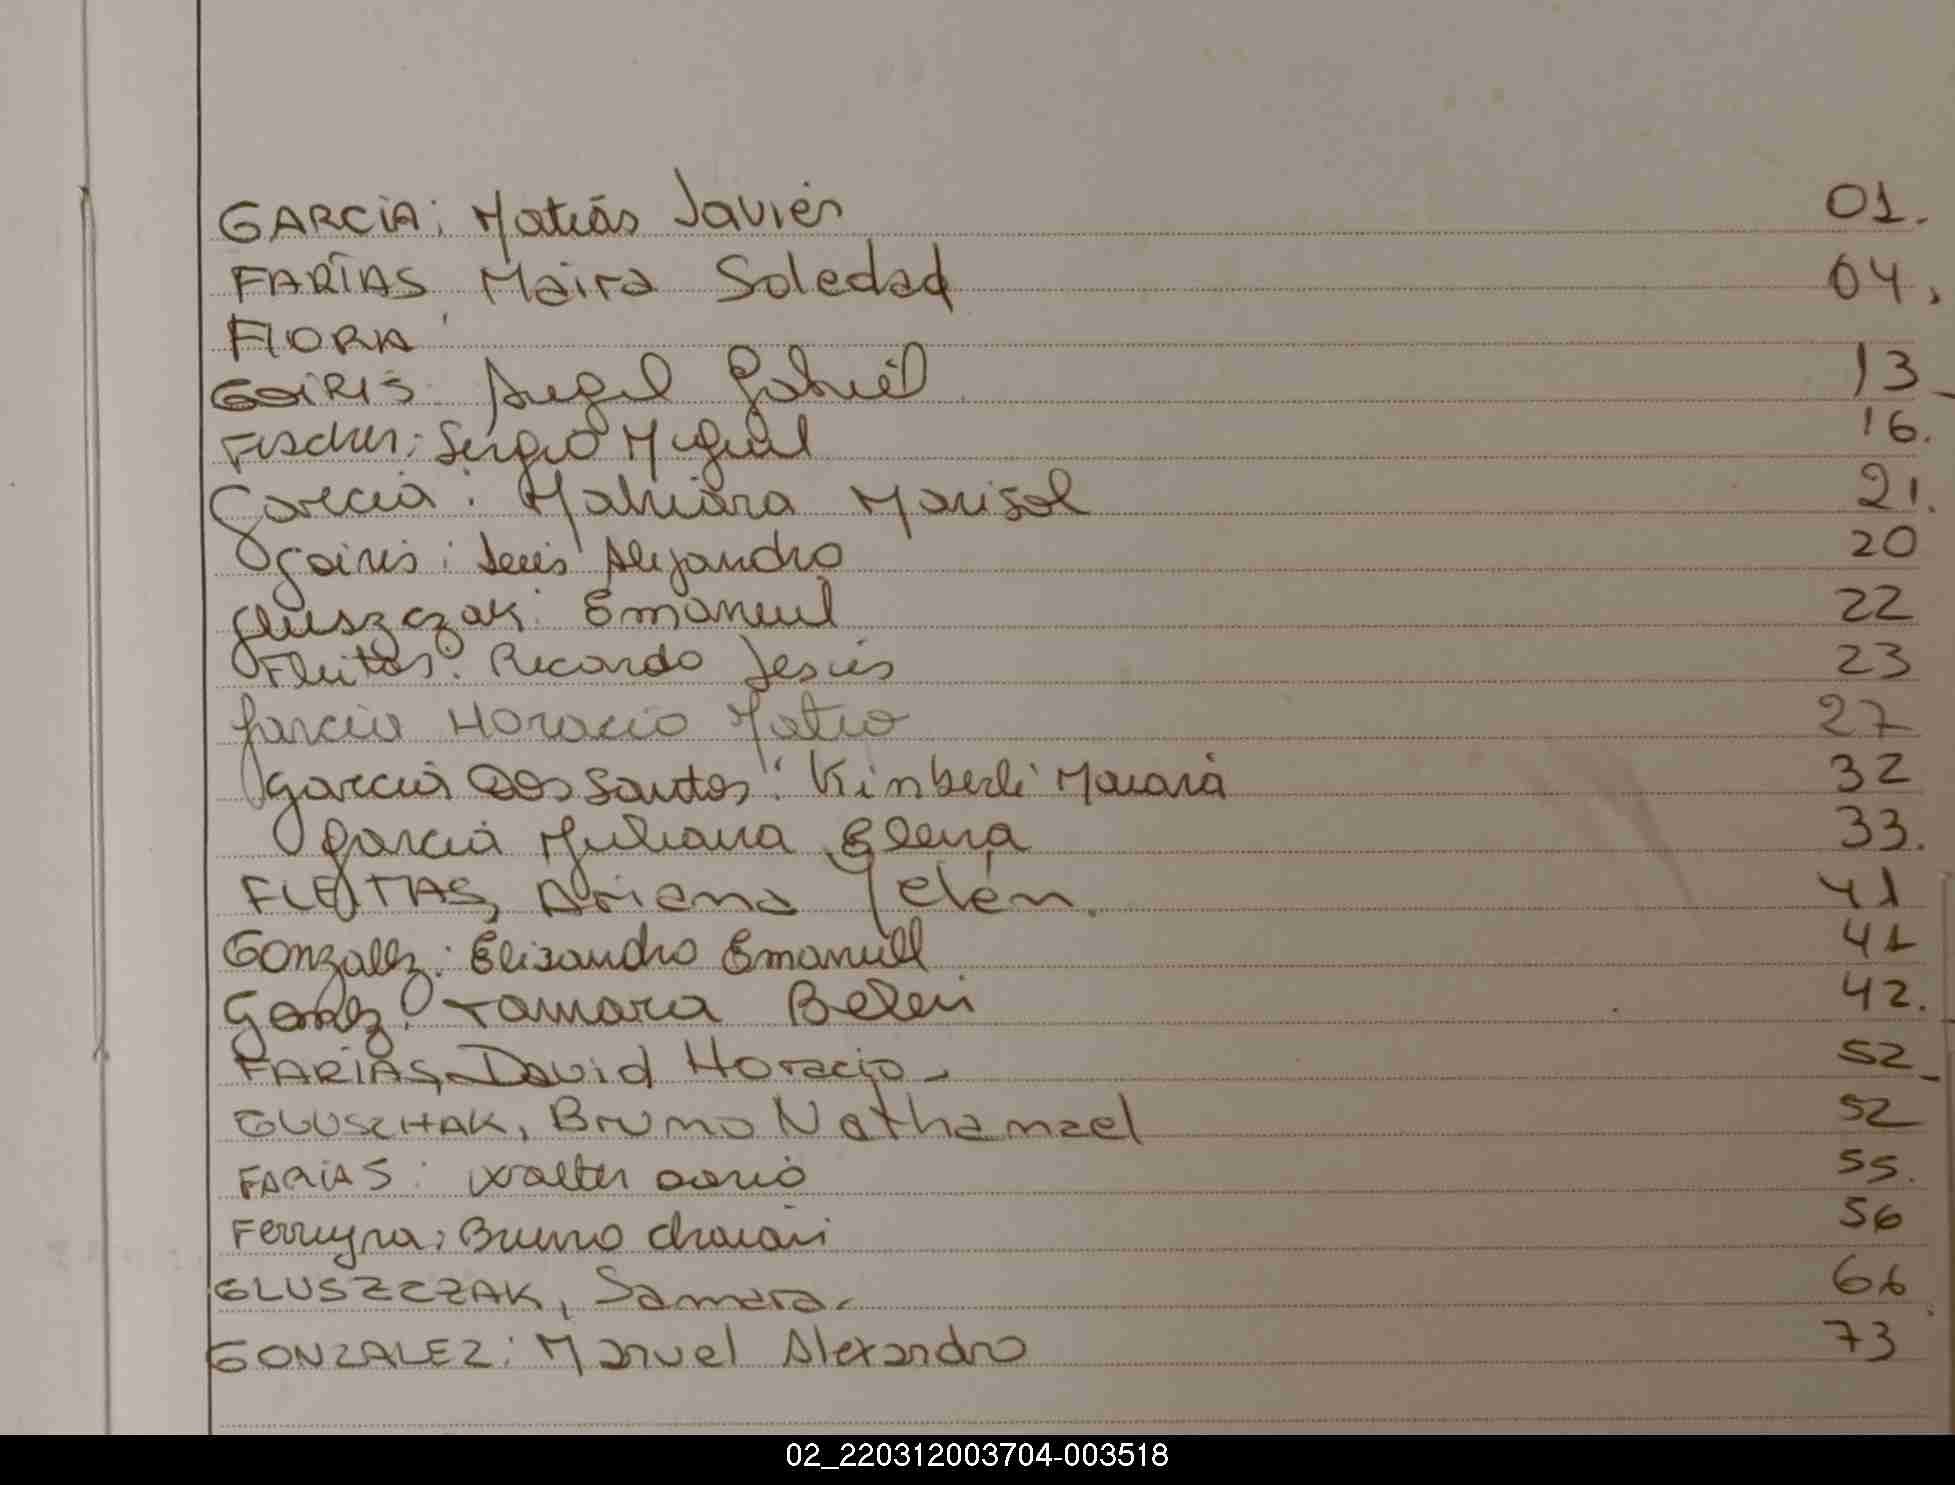 GARCÍA: Matías Javier 01.
FARÍAS Maira Soledad 04.
FIORA
GOIRIS Angel Gabriel 13
Fischer: Sergio Miguel 16.
Garcia: Mahiara Marisol 21.
Goiris: Alejandro 20
Gluszczak: Emanuel 22
Fleitas: Ricardo Jesús 23
Garcia Horacio Mateo 27
Garcia Dos Santos: Kinberli Maiará 32
Garcia Juliana Elena 33.
FLEITAS, Ariana Yelén. 41
Gonzalez: Elisandro Emanuel 41
Tamara Belen 42.
FARÍAS, David Horacio- 52
GLUSCHAK, Bruno Nathanael 52
FARIAS: Walter Dario 55.
Ferreyra: Bruno 56
GLUSZCZAK, Samara. 66
GONZALEZ: Manuel Alexandro 73
02_220312003704-003518